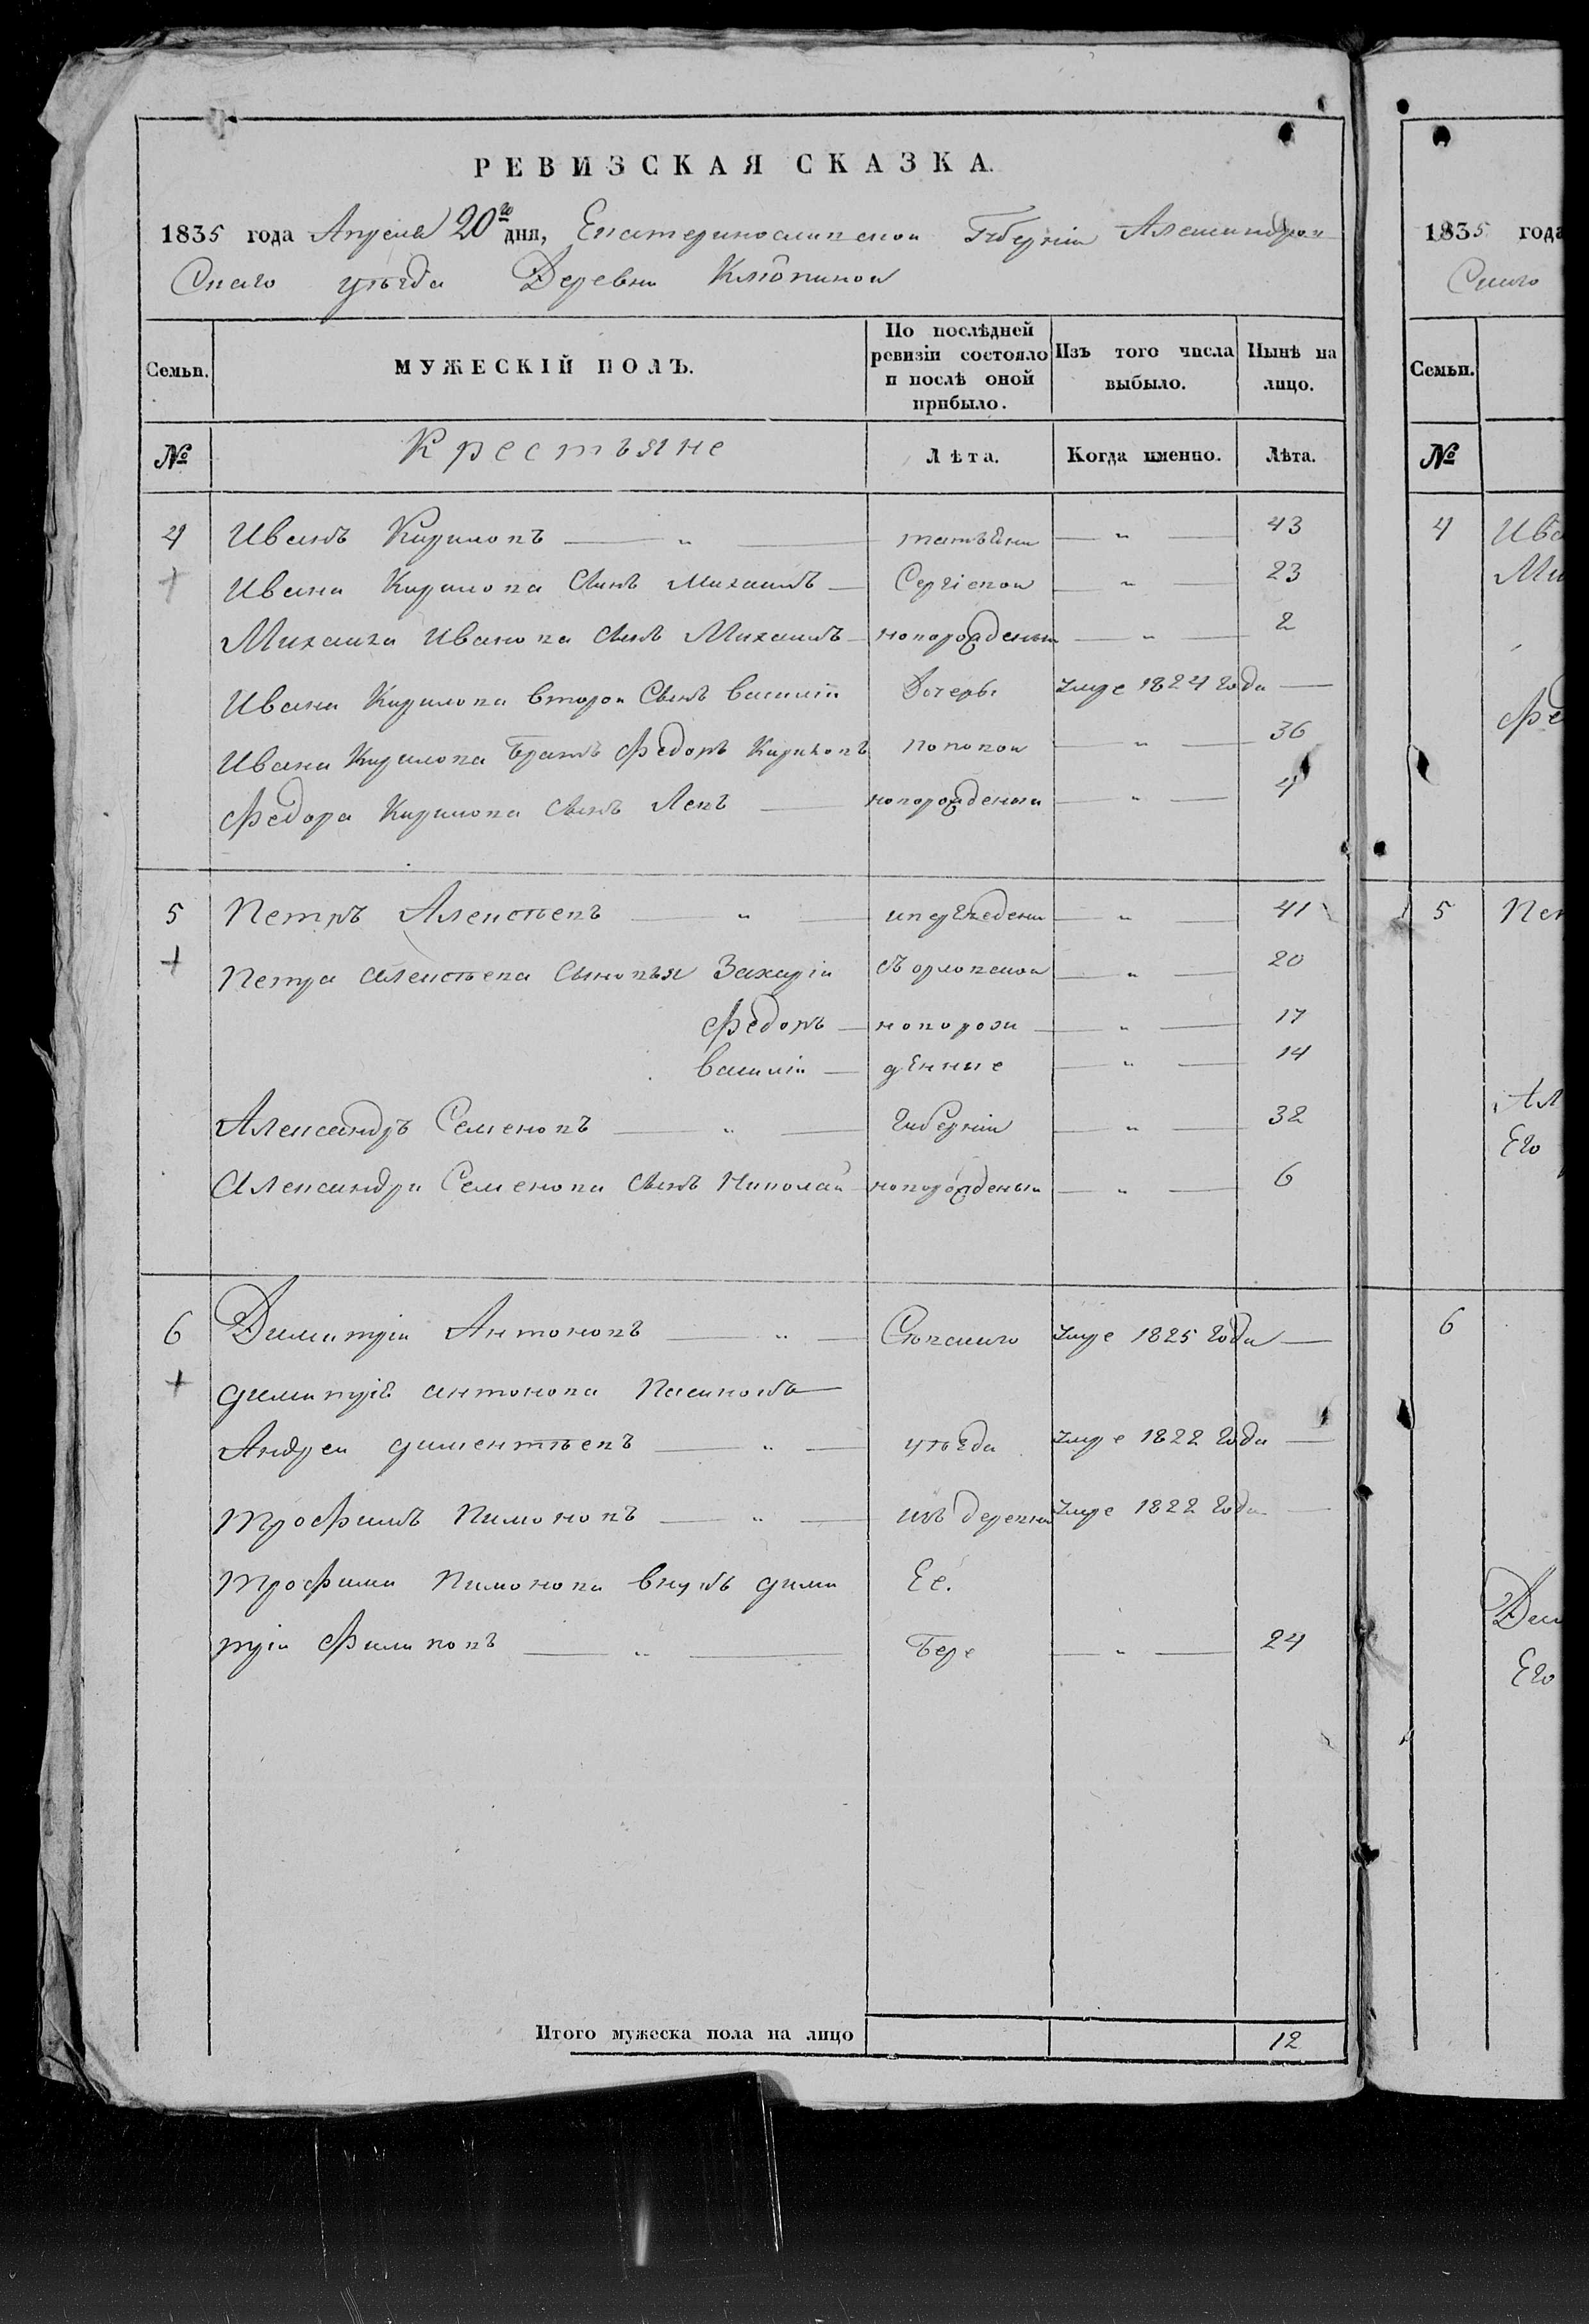 РЕВИЗСКАЯ СКАЗКА.
1835 года Апреля 20го дня, Екатеринославской Губерніи Александров
Скаго уѣзда Деревни Клюпиной
Семьи. МУЖЕСКІЙ ПОЛЪ. По послѣдней ревизіи состояло и послѣ оной прибыло. Изъ того числа выбыло. Нынѣ на лицо.
№ Крестьяне Лѣта. Когда именно. Лѣта.
4 Иванъ Кириловъ — „ — татьяни — „ — 43
+ Ивана Кирилова Сынъ Михаилъ — Сергіевой — „ — 23
Михаила Иванова Сынъ Михаилъ — новорожденый — „ — 2
Ивана Кирилова второй Сынъ василій Дочеры умре 1824 года —
Ивана Кирилова Братъ Федоръ Кириловъ Поповой — „ — 36
Федора Кирилова Сынъ Левъ — новорожденый — „ — 4
5 Петръ Алексѣевъ — „ — — „ — 41
+ Петра Алексѣева Сыновья Захарій съ орловской — „ — 20
Федоръ — новорож — „ — 17
василій — денные — „ — 14
Александръ Семеновъ — „ — Губерніи — „ — 32
Александра Семенова Сынъ Николай новорожденый — „ — 6
6 Димитрій Антоновъ — „ — умре 1825 года —
+ димитрія антонова Пасинокъ —
Андрей дементѣевъ — „ — уѣзда умре 1822 года —
трофимъ Пимоновъ — „ — изъ деревни умре 1822 года —
трофима Пимонова внукъ дими Ее.
трій Филиповъ — „ — Бере — „ — 24
Итого мужеска пола на лицо 12
1835 года
Скаго
Семьи.
№
4 Ива
Ми
Фе
5 Пет
Ал
Его
6
Дим
Его